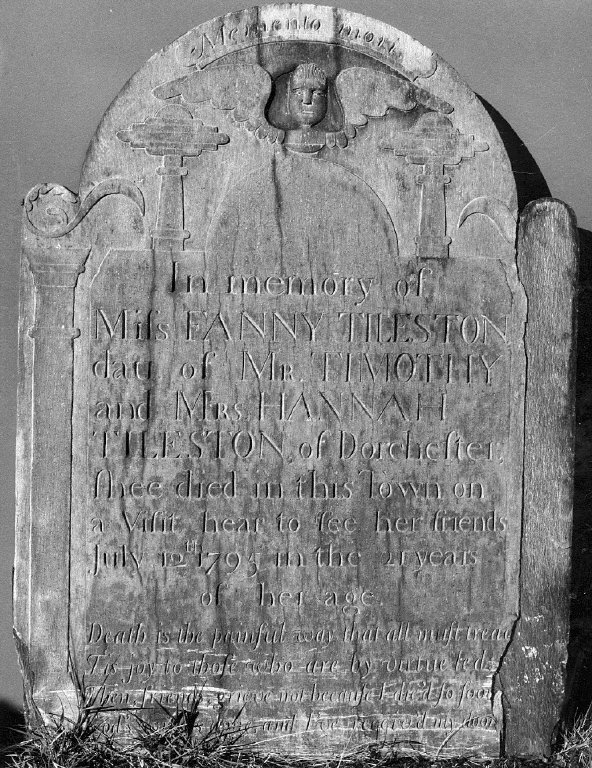 Memento mori.
In memory of
Miſs FANNY TILESTON
dau of MR. TIMOTHY
and MRS HANNAH
TILESTON, of Dorcheſter,
ſhee died in this Town on
a Viſit hear to ſee her friends
July 12th 1795 in the 21 years
of her age.
Death is the painful way that all muſt tread
Tis joy to thoſe who are by virtue led
Then friends grieve not becauſe I died ſo ſoon
and I've received my doom